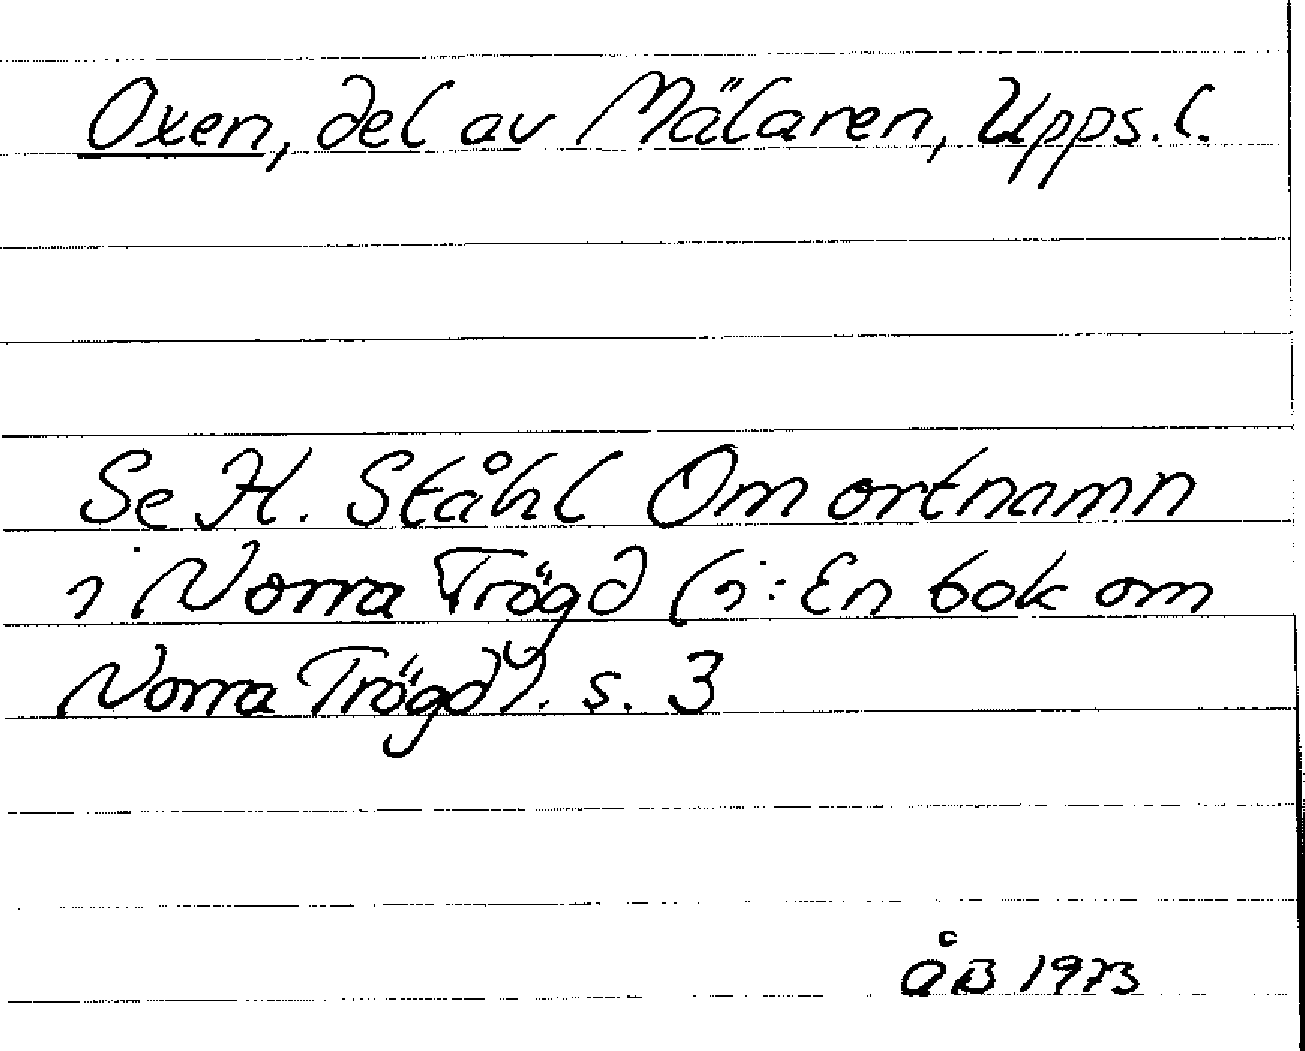 Oxen, del av Mälaren, Upps. l.
Se H. Ståhl Om ortnamn
i Norra Trögd (i: En bok om
Norra Trögd). s. 3
ÅB 1973